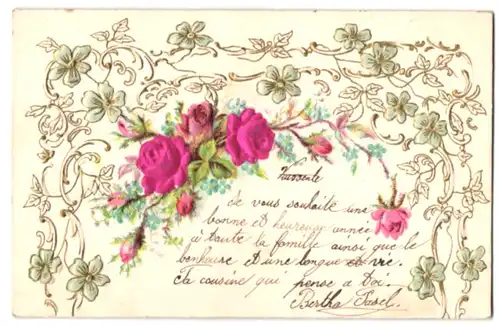 je vous souhaite une
bonne et heureuse année
à toute la famille ainsi que le
bonheure et une longue vie.
Ta cousine qui pense a toi.
Bertha